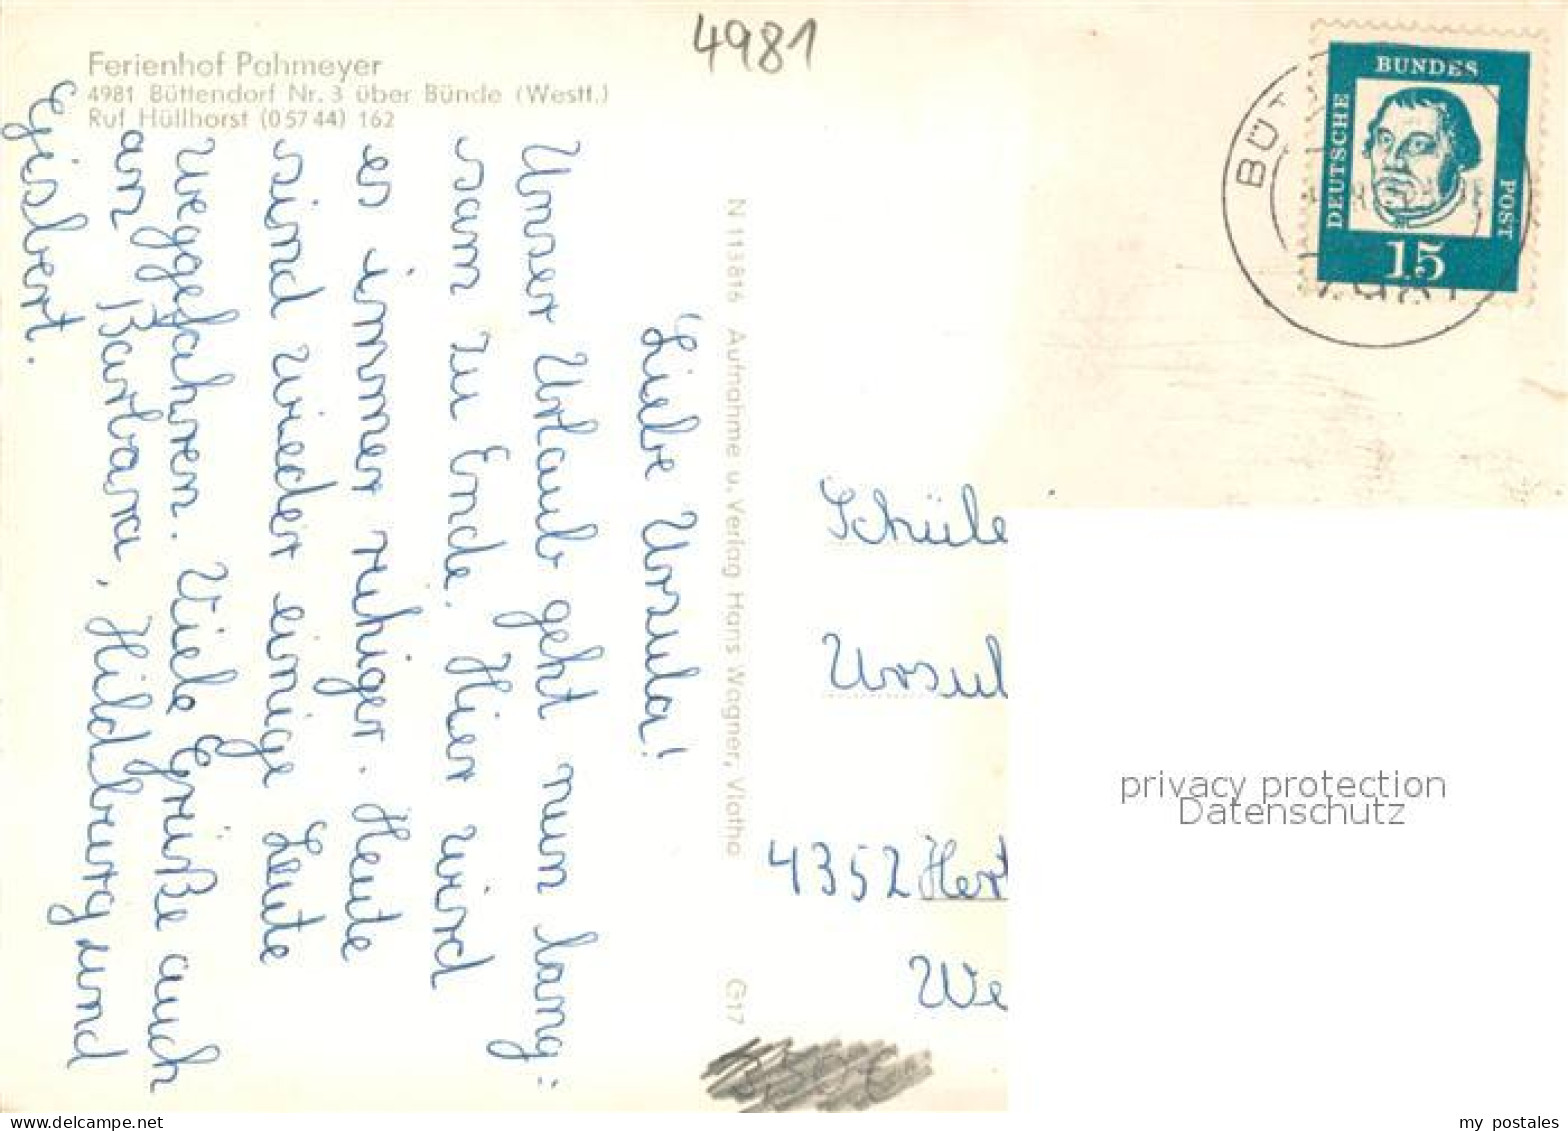 4981
Ferienhof Pahmeyer
4981 Büttendorf Nr. 3 über Bünde (Westf.)
Ruf Hüllhorst (05744) 162
BUNDES
DEUTSCHE
POST
15
BÜT
Liebe Ursula!
Unser Urlaub geht nun lang:
sam zu Ende. Hier wird
es immer ruhiger. Heute
sind wieder einige Leute
weggefahren. Viele Grüße auch
an Barbara, Hildburg und
Gisbert.
N 113816 Aufnahme u. Verlag Hans Wagner, Vlotho G17
Schüle
Ursul
4352 Hert
We
privacy protection
Datenschutz
www.delcampe.net
my_postales